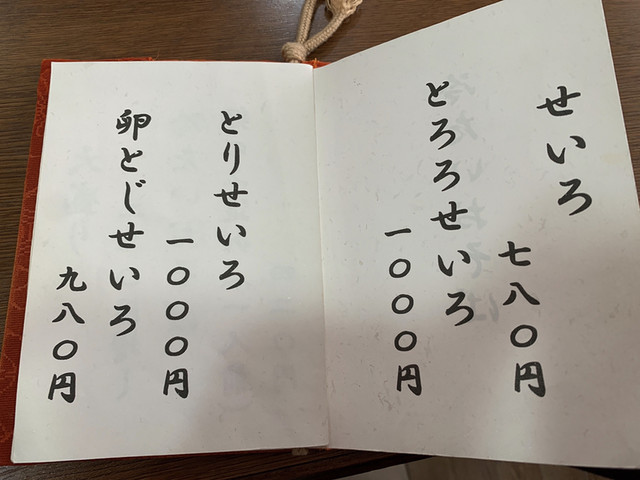 せいろ
七八〇円
とろろせいろ
一〇〇〇円
とりせいろ
一〇〇〇円
卵とじせいろ
九八〇円